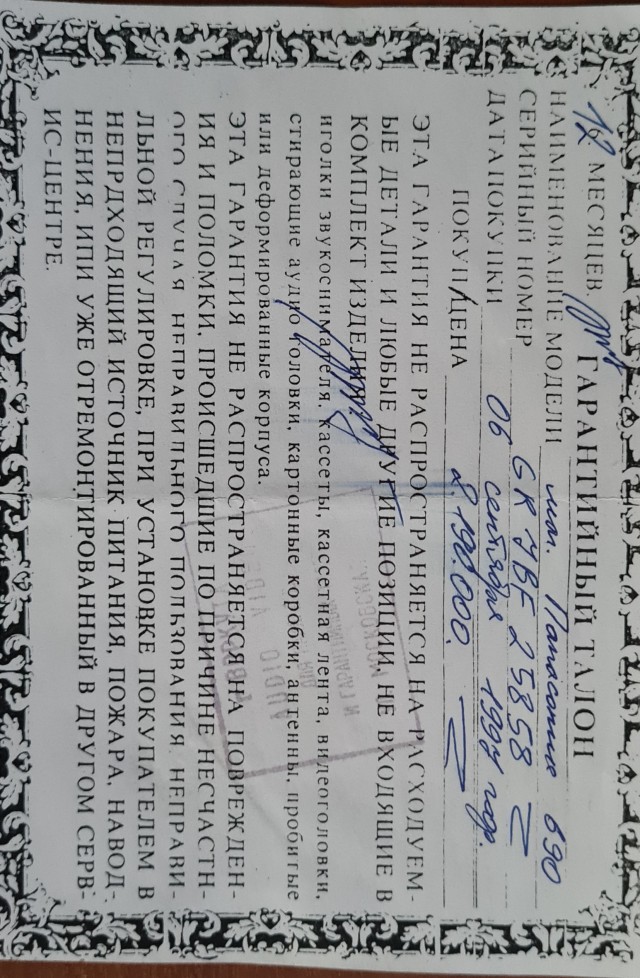 ГАРАНТИЙНЫЙ ТАЛОН
12 МЕСЯЦЕВ.
НАИМЕНОВАНИЕ МОДЕЛИ мод. Панасоник 690
СЕРИЙНЫЙ НОМЕР GK 7BF 25858
ДАТА ПОКУПКИ 06 сентября 1997 год.
ПОКУП/ЦЕНА 2.190.000.
ЭТА ГАРАНТИЯ НЕ РАСПРОСТРАНЯЕТСЯ НА РАСХОДУЕМ-
ЫЕ ДЕТАЛИ И ЛЮБЫЕ ДРУГИЕ ПОЗИЦИИ, НЕ ВХОДЯЩИЕ В
КОМПЛЕКТ ИЗДЕЛИЯ:
иголки звукоснимателя, кассеты, кассетная лента, видеоголовки,
стирающие аудио головки, картонные коробки, антенны, пробитые
или деформированные корпуса.
ЭТА ГАРАНТИЯ НЕ РАСПРОСТРАНЯЕТСЯ НА ПОВРЕЖДЕН-
ИЯ И ПОЛОМКИ, ПРОИСШЕДШИЕ ПО ПРИЧИНЕ НЕСЧАСТН-
ОГО СЛУЧАЯ НЕПРАВИЛЬНОГО ПОЛЬЗОВАНИЯ НЕПРАВИ-
ЛЬНОЙ РЕГУЛИРОВКЕ, ПРИ УСТАНОВКЕ ПОКУПАТЕЛЕМ В
НЕПРДХОДЯЩИЙ ИСТОЧНИК ПИТАНИЯ, ПОЖАРА, НАВОД-
НЕНИЯ, ИПИ УЖЕ ОТРЕМОНТИРОВАННЫЙ В ДРУГОМ СЕРВ-
ИС-ЦЕНТРЕ.